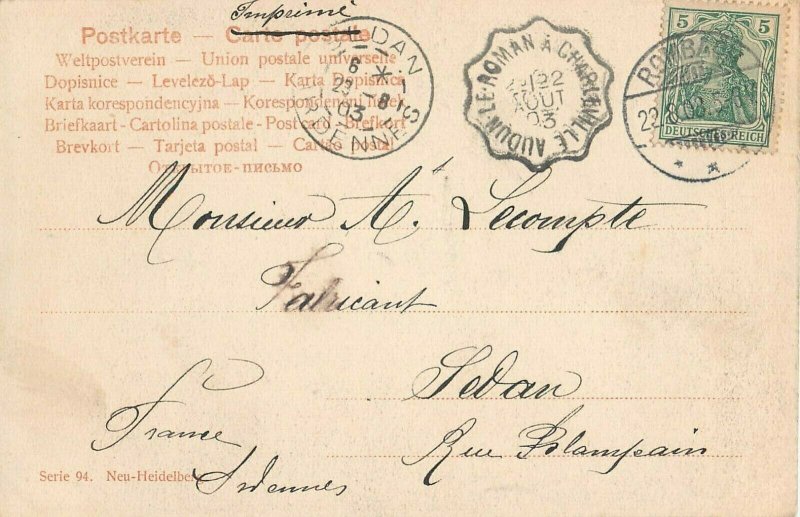 Imprimé
Postkarte — Carte postale
Weltpostverein — Union postale universelle
Dopisnice — Levelező-Lap — Karta Dopisnica
Karta korespondencyjna — Korespondenční
Briefkaart - Cartolina postale - Post card - Brefkort
Brevkort — Tarjeta postal — Cartao postal
Открытое-письмо
SEDAN
6 *
23 - 8
03
ARDENNES
AUDUN-LE-ROMAN A CHARLEVILLE
22
AOUT
03
5 5
DEUTSCHES REICH
ROMBA
Monsieur A. Lecompte
Fabricant
Sedan
Rue Blampain
France
Ardennes
Serie 94. Neu-Heidelber